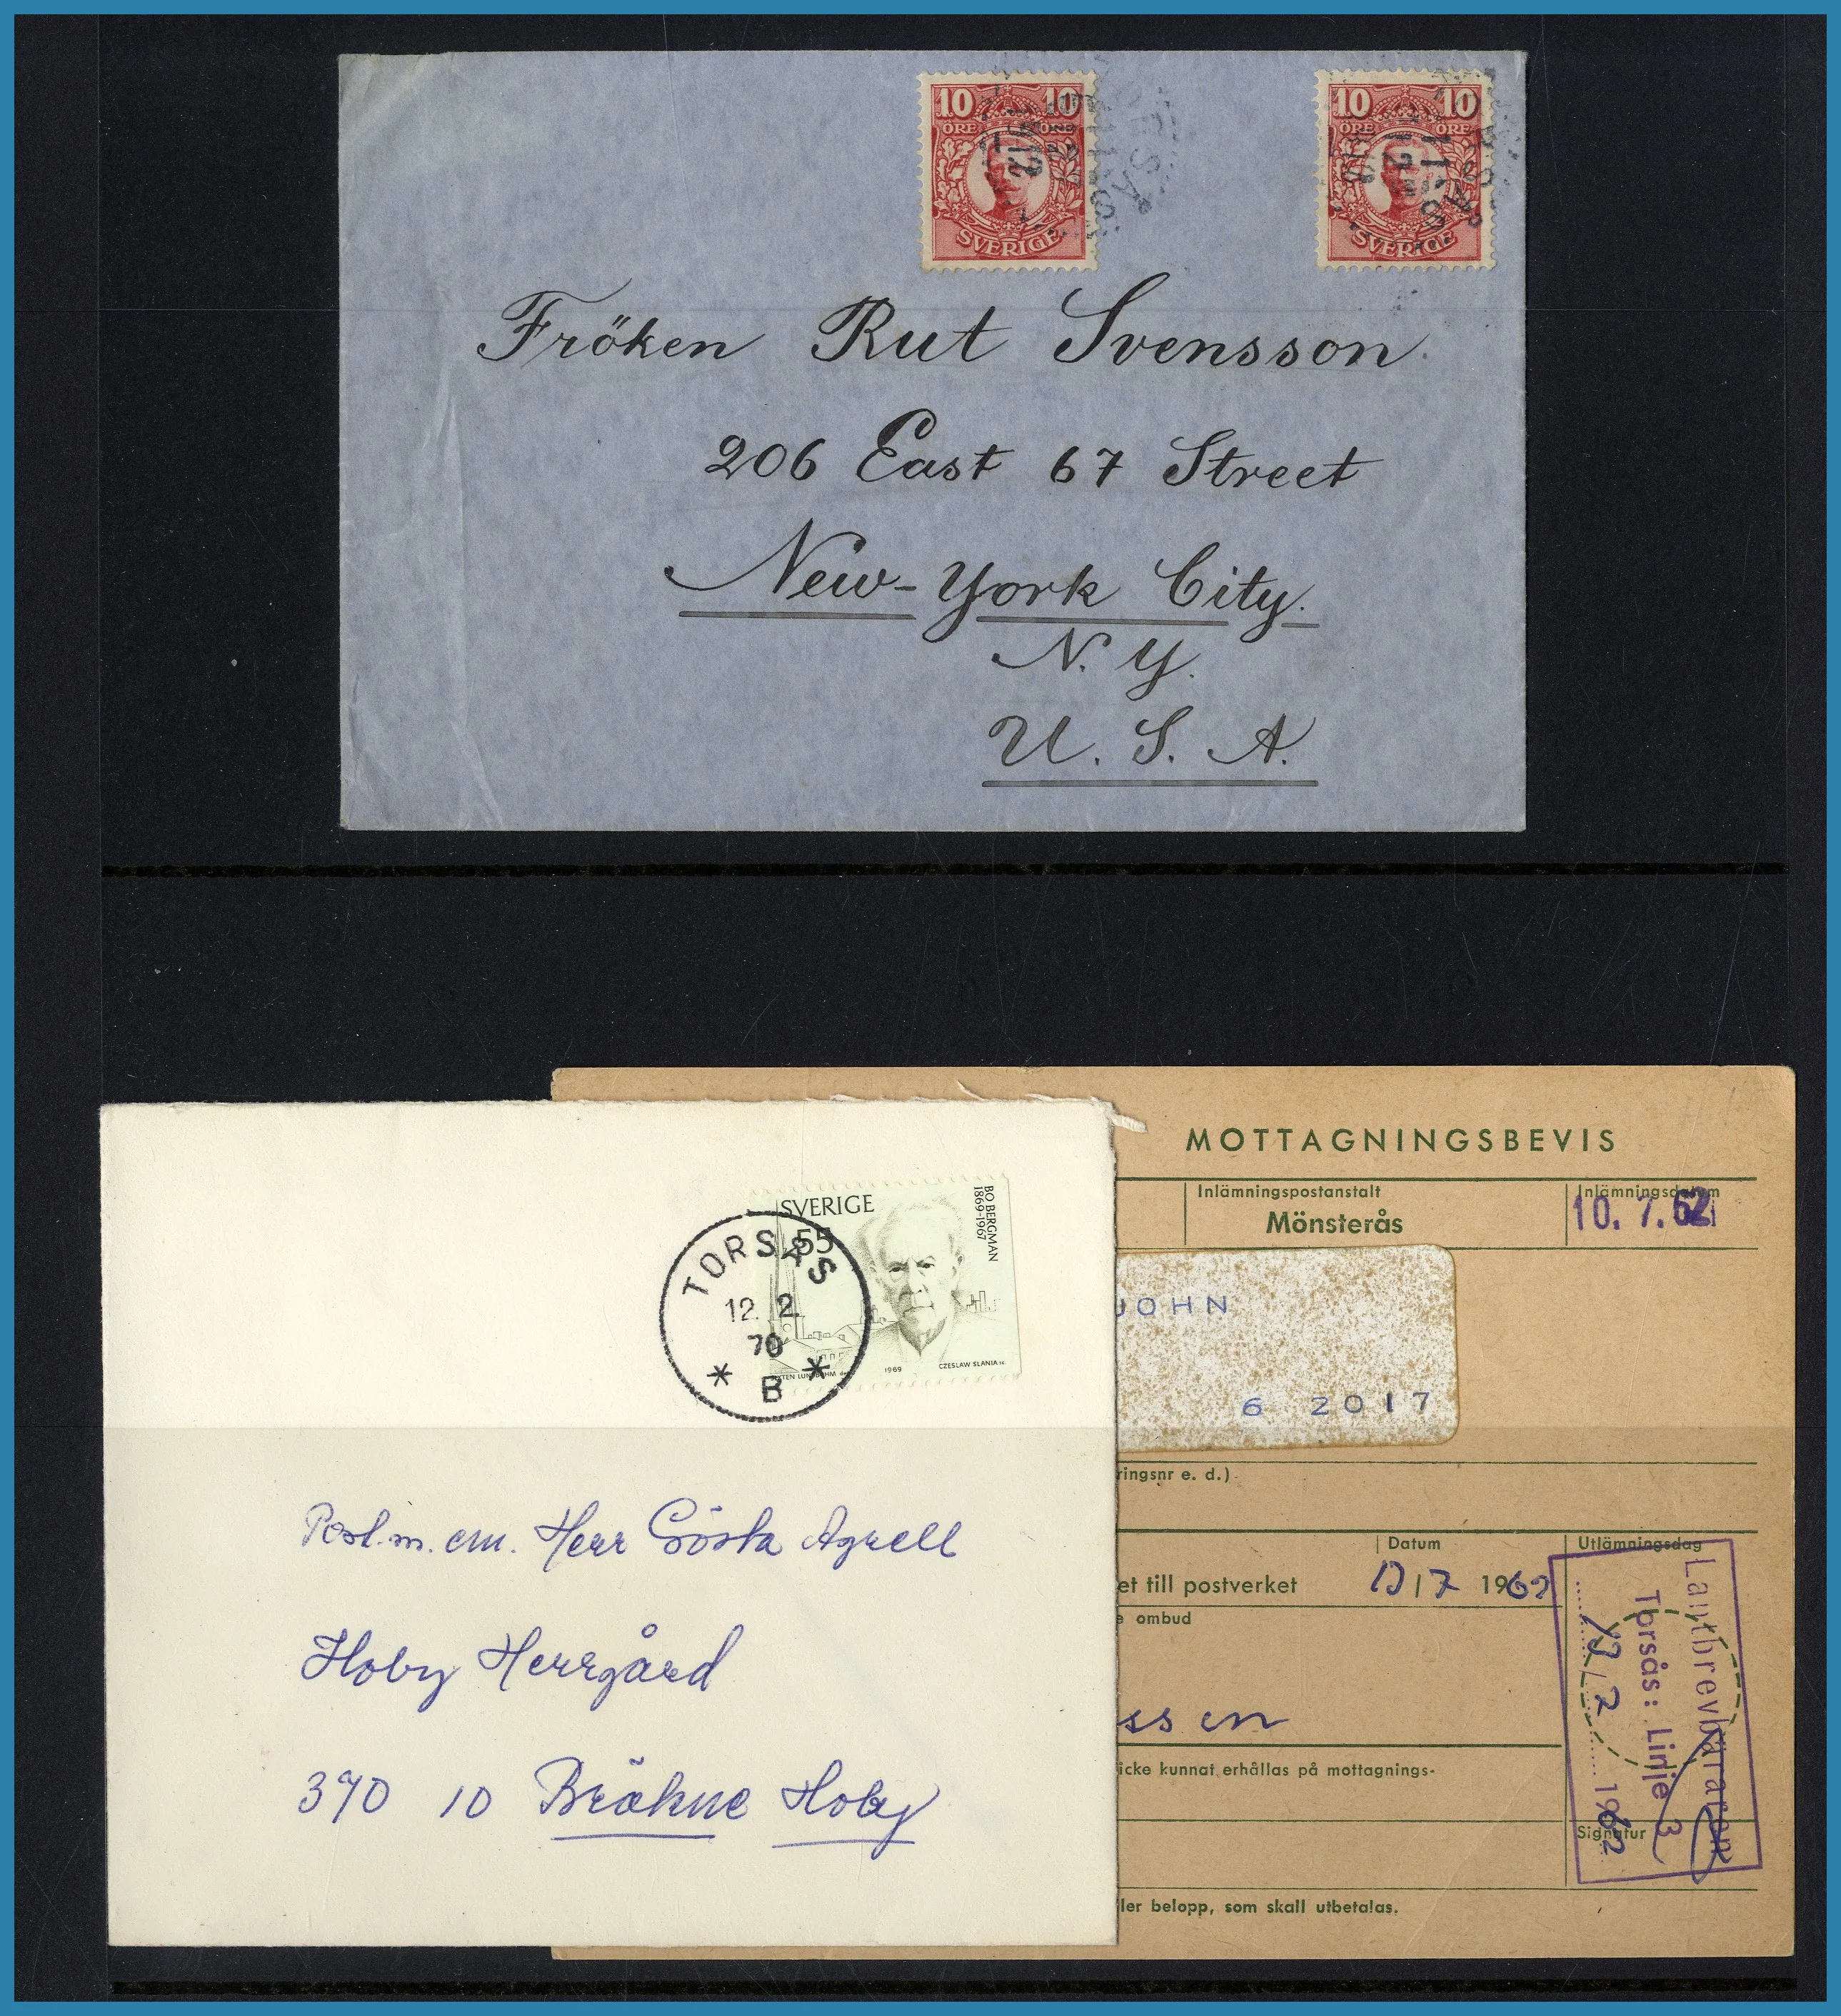 10 10
ÖRE ÖRE
SVERIGE
10 10
ÖRE ÖRE
SVERIGE
Fröken Rut Svensson.
206 East 67 Street
New-York City.
N. Y.
U. S. A.
SVERIGE
55
BO BERGMAN
1869-1967
1969
CZESLAW SLANIA sc
TORSÅS
12. 2.
70
* B *
Post.m. em. Herr Gösta Agrell
Hoby Herrgård
370 10 Bräkne Hoby
MOTTAGNINGSBEVIS
Inlämningspostanstalt
Mönsterås
Inlämningsdatum
10. 7. 62
JOHN
6 2017
ringsnr e. d.)
et till postverket
Datum
1962
Utlämningsdag
e ombud
ssen
icke kunnat erhållas på mottagnings-
Signatur
ler belopp, som skall utbetalas.
Lantbrevbäraren
Torsås: Linje 3
1962